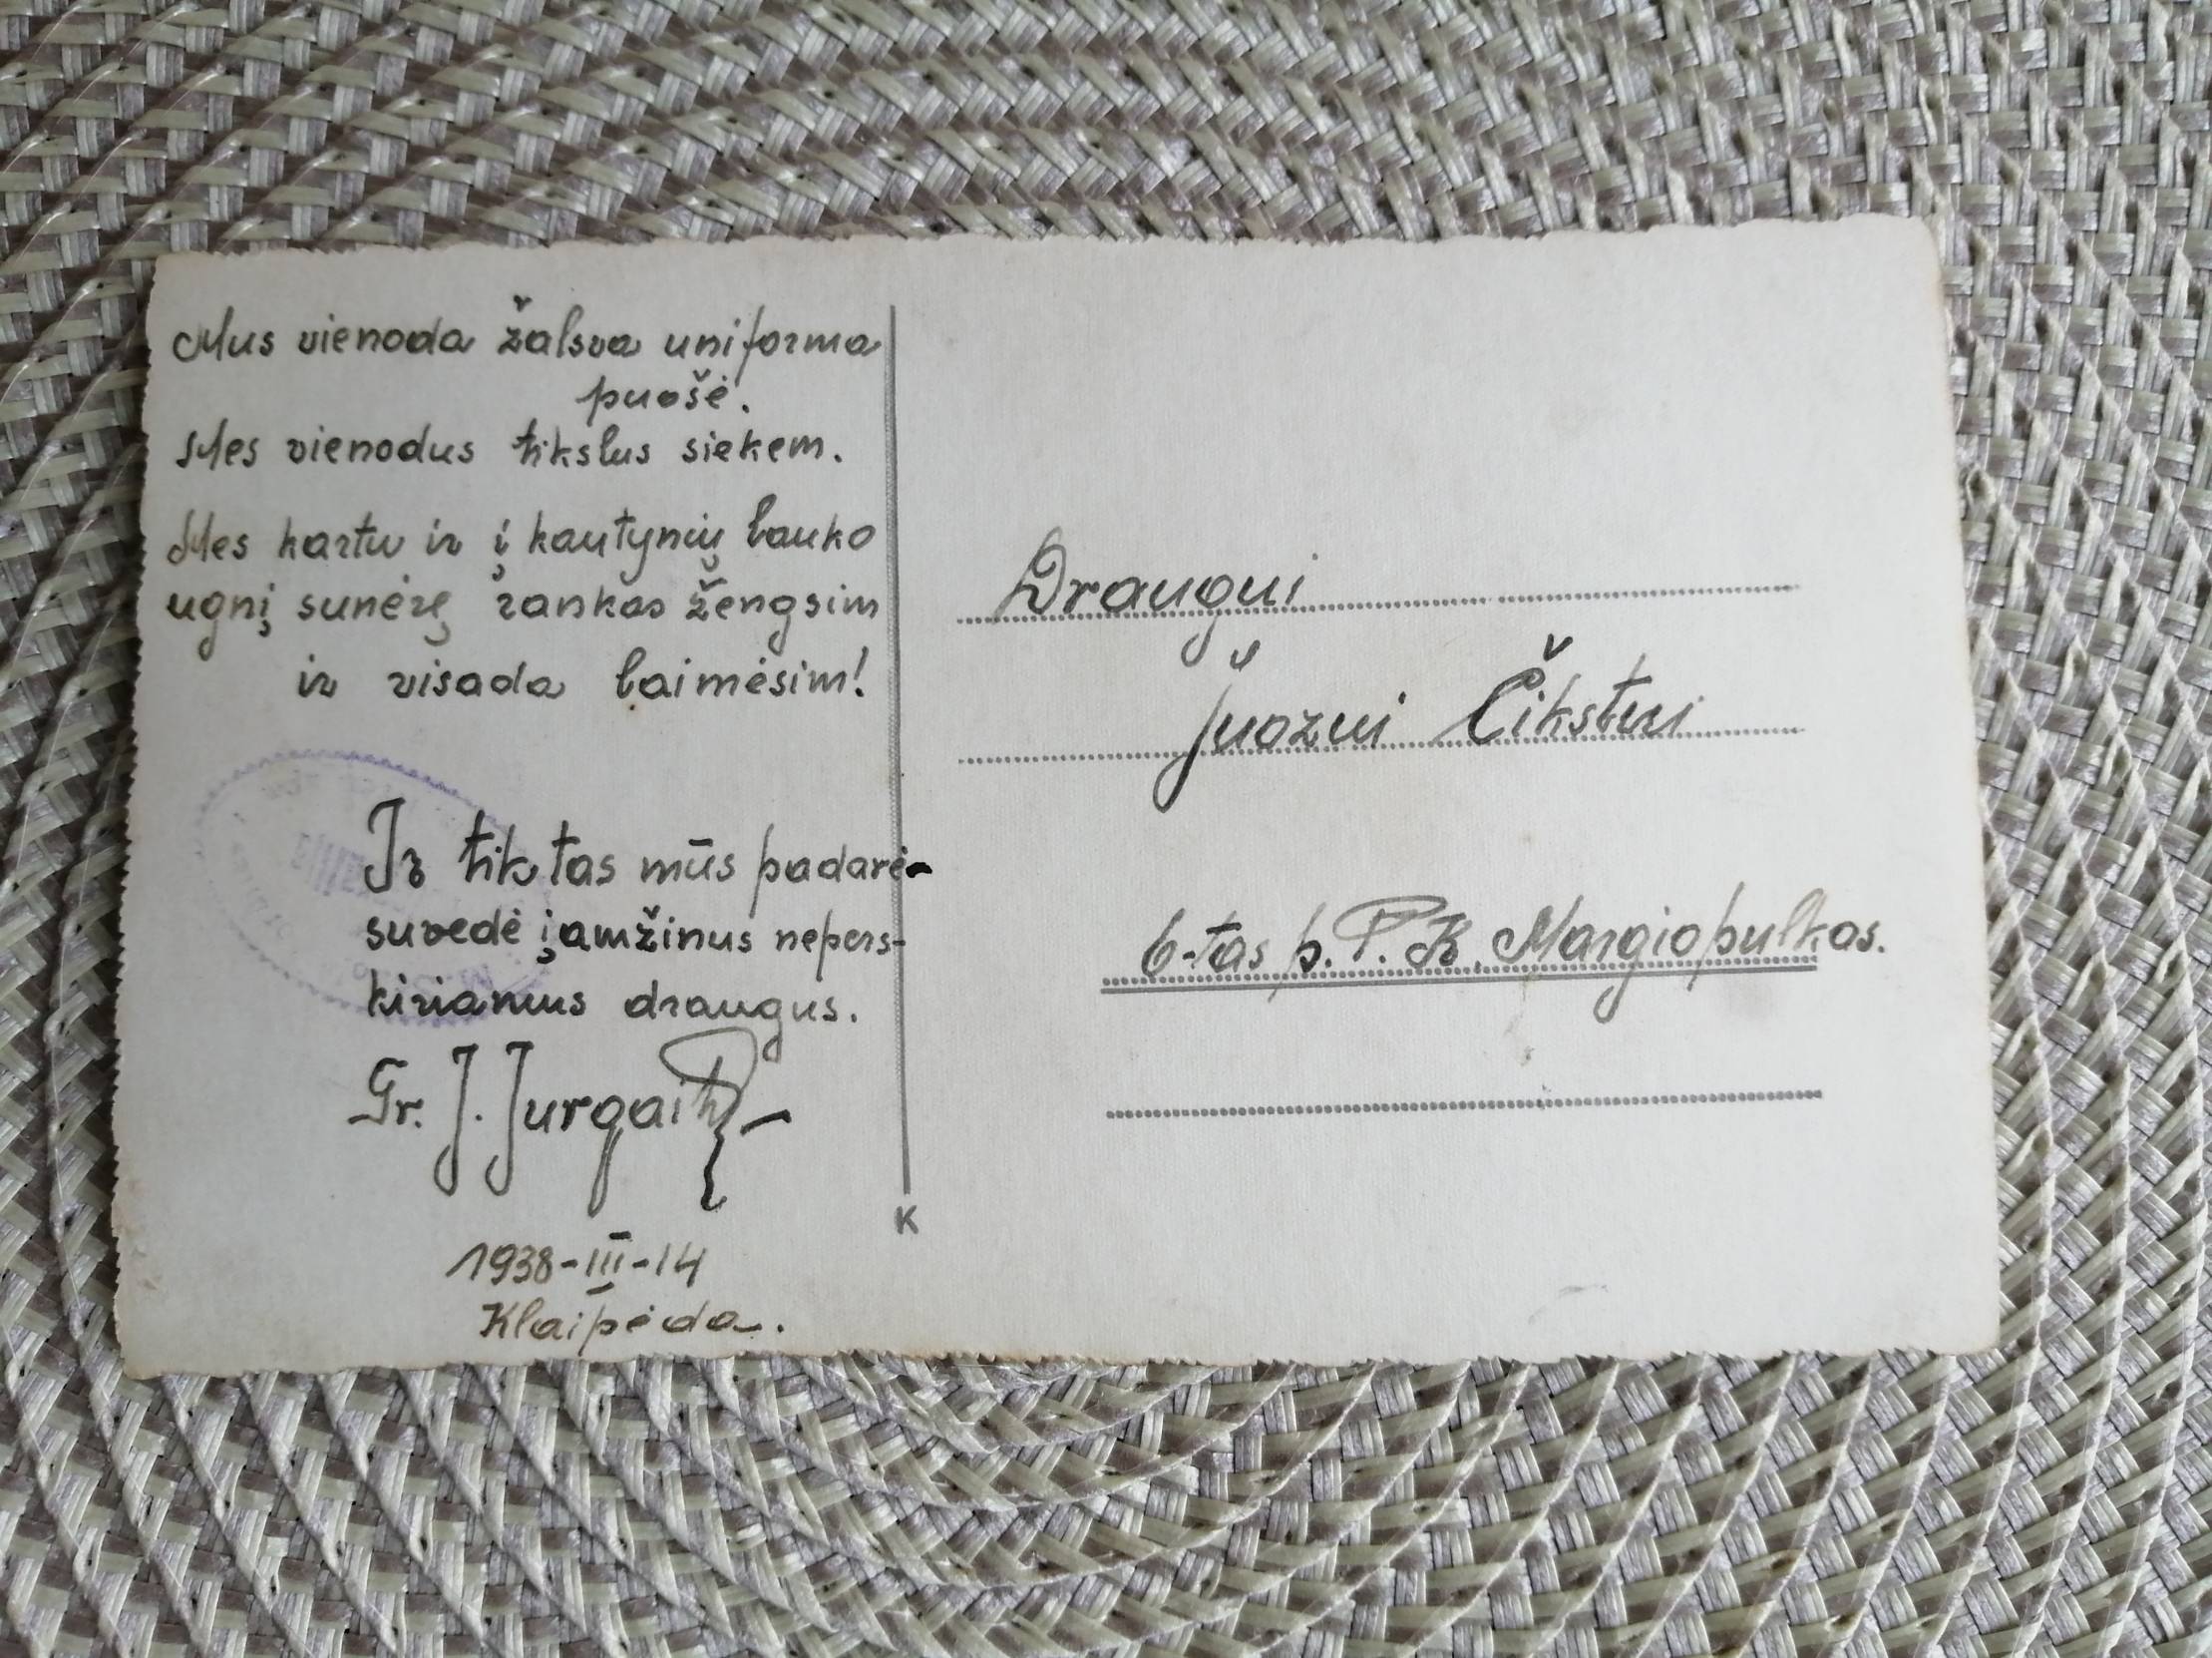 Mus vienoda žalsva uniforma
puošė.
Mes vienodus tikslus siekem.
Mes kartu ir į kautynių lauko
ugnį sunėrę rankas žengsim
ir visada laimėsim!
Ir tik tas mūs padarė-
suvedė įamžinus nepers-
kiriamus draugus.
Gr. J. Jurgaitis
1938-III-14
Klaipėda.
K
Draugui
Juozui Čikstui
6-tas p. P. K. Margio pulkas.